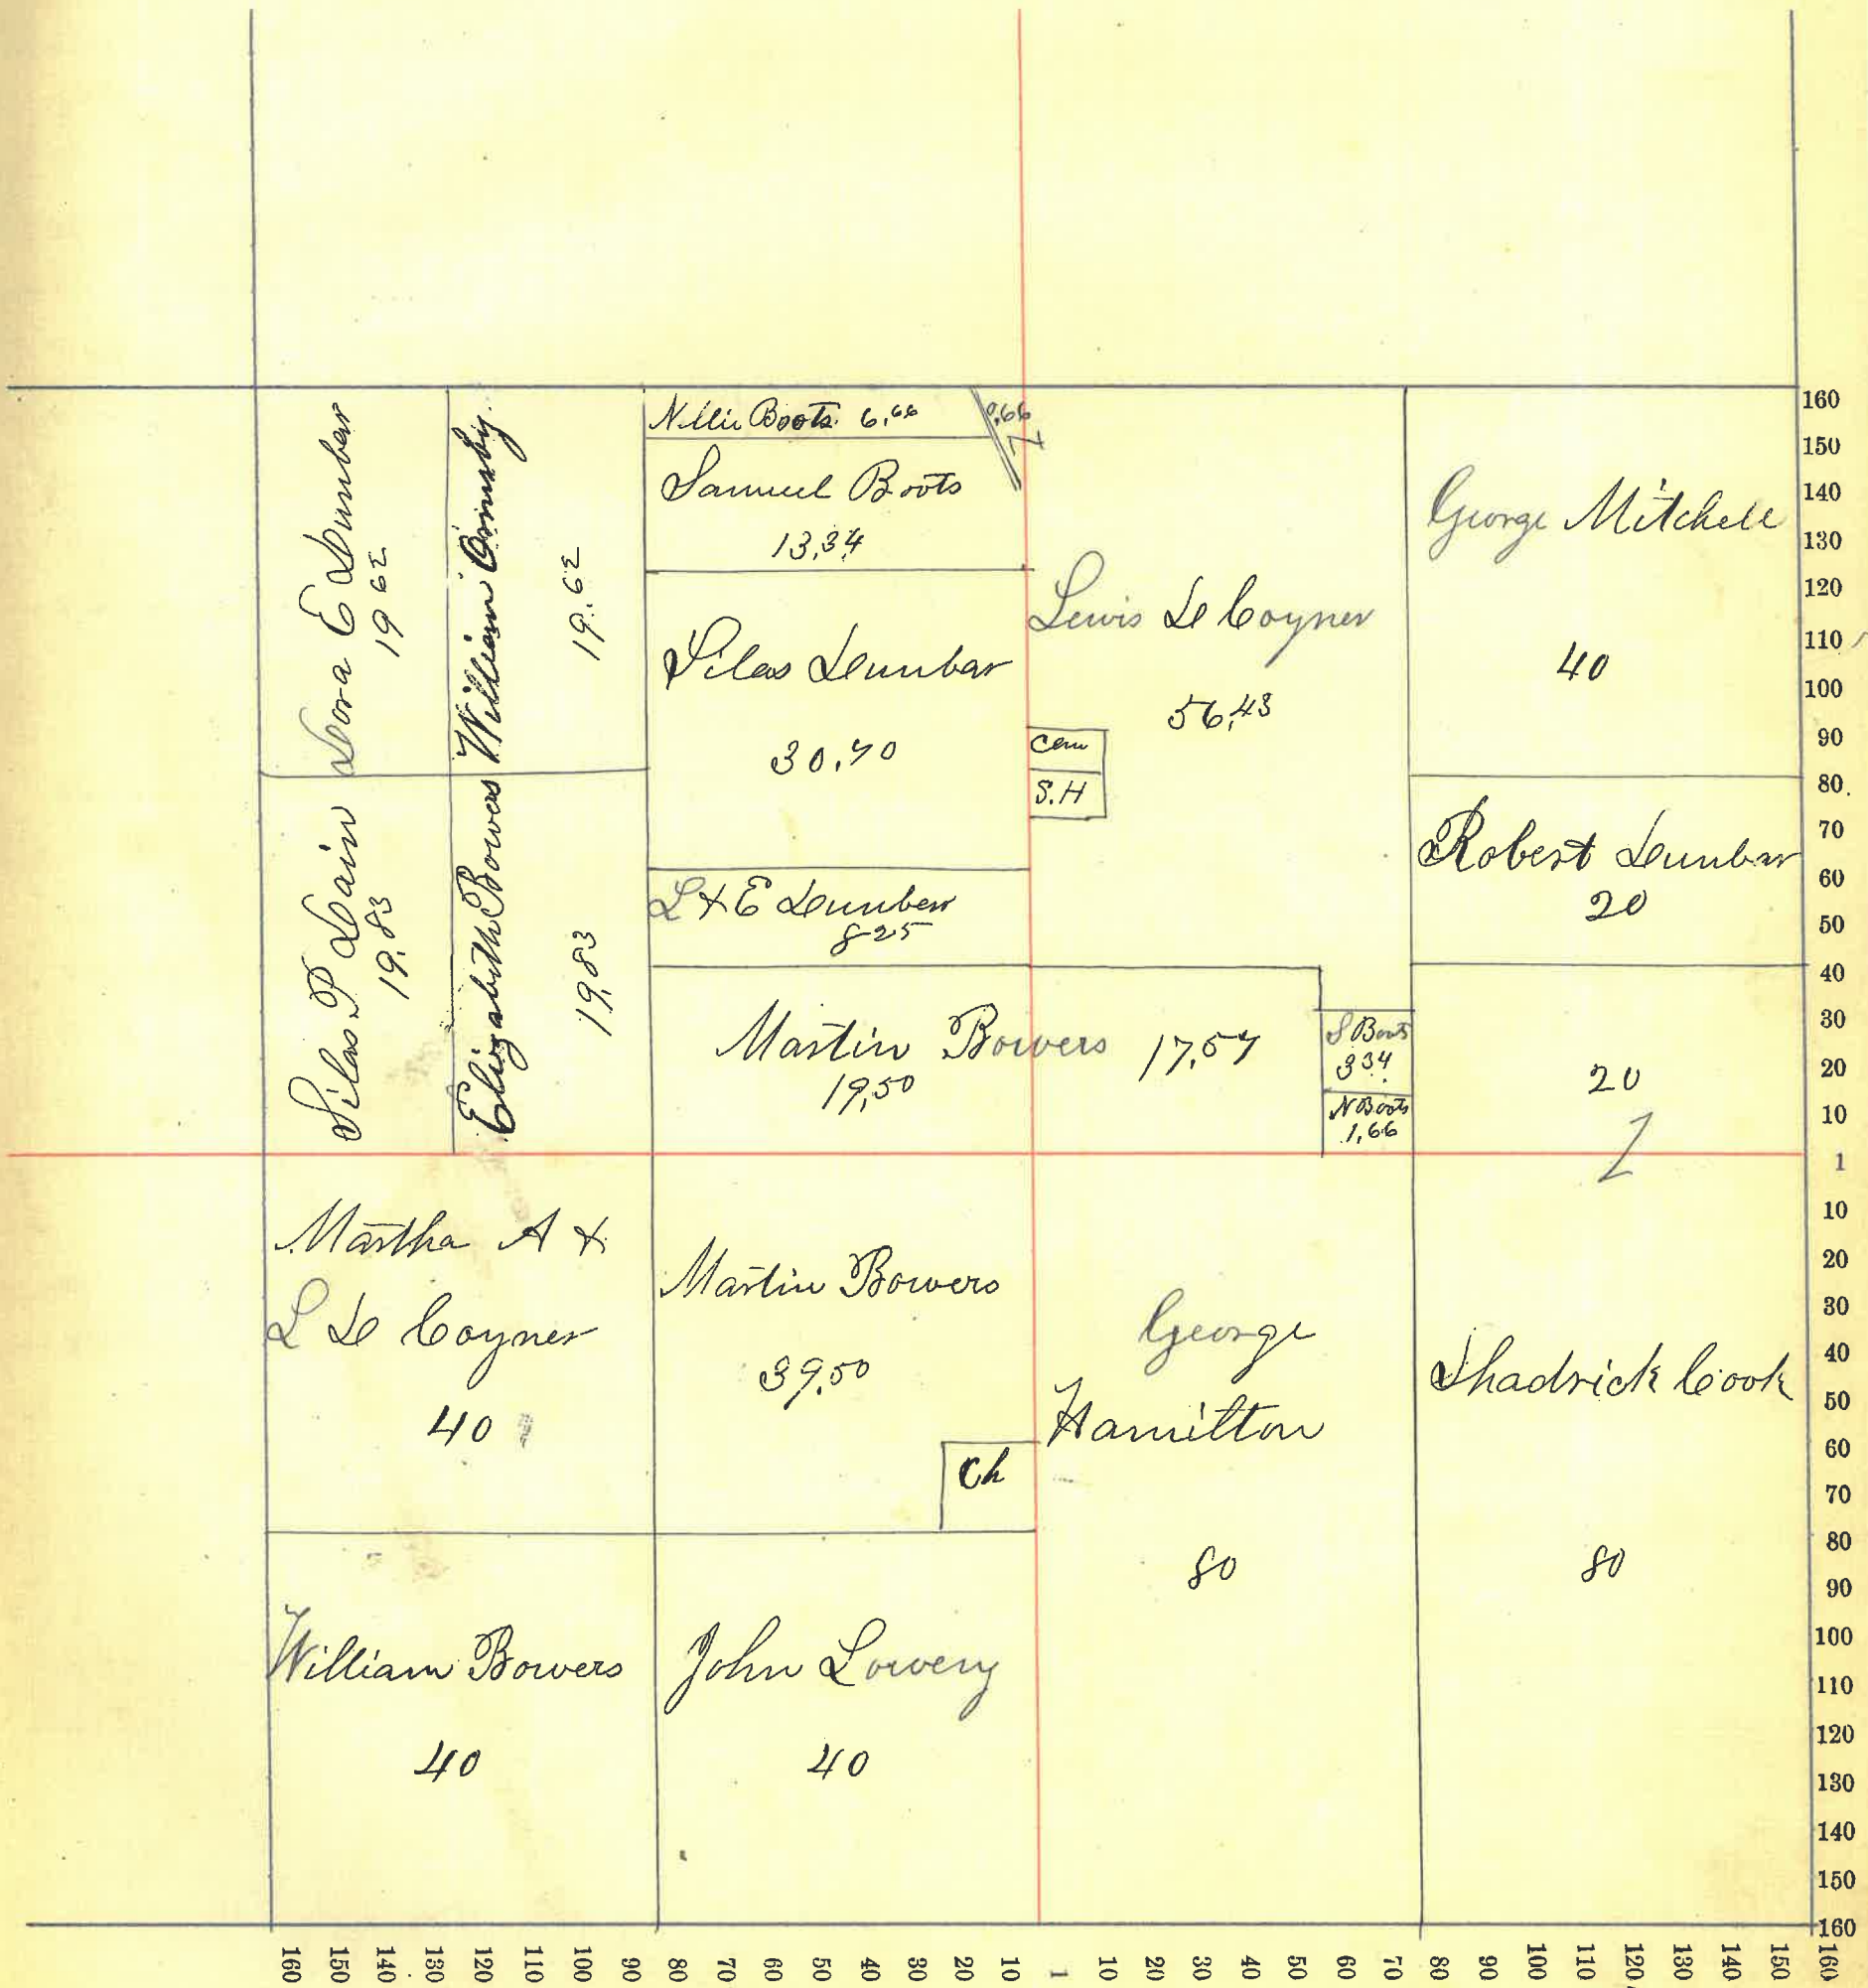 Dora E Dunbar
19 62
William Ormsby.
19.62
Silas P Dain
19.83
Elizabeth Bowers
19.83
Nellie Boots. 6.66
0.66
Samuel Boots
13.34
Silas Dunbar
30.70
L & E Dunbar
8-25
Lewis D Coyner
56.43
Cem
S.H
George Mitchell
40
Robert Dunbar
20
Martin Bowers 17.57
19.50
S Boots
3 34
N Boots
1.66
20
Martha A &
L D Coyner
40
Martin Bowers
39.50
Ch
George
Hamilton
80
Shadrick Cook
80
William Bowers
40
John Lowery
40
160
150
140
130
120
110
100
90
80
70
60
50
40
30
20
10
1
10
20
30
40
50
60
70
80
90
100
110
120
130
140
150
160
160 150 140 130 120 110 100 90 80 70 60 50 40 30 20 10 1 10 20 30 40 50 60 70 80 90 100 110 120 130 140 150 160